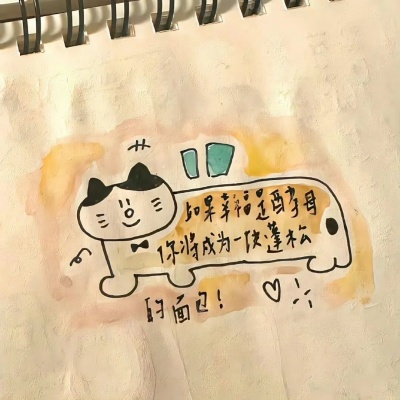 如果幸福是酵母
你将成为一快蓬松
的面包！